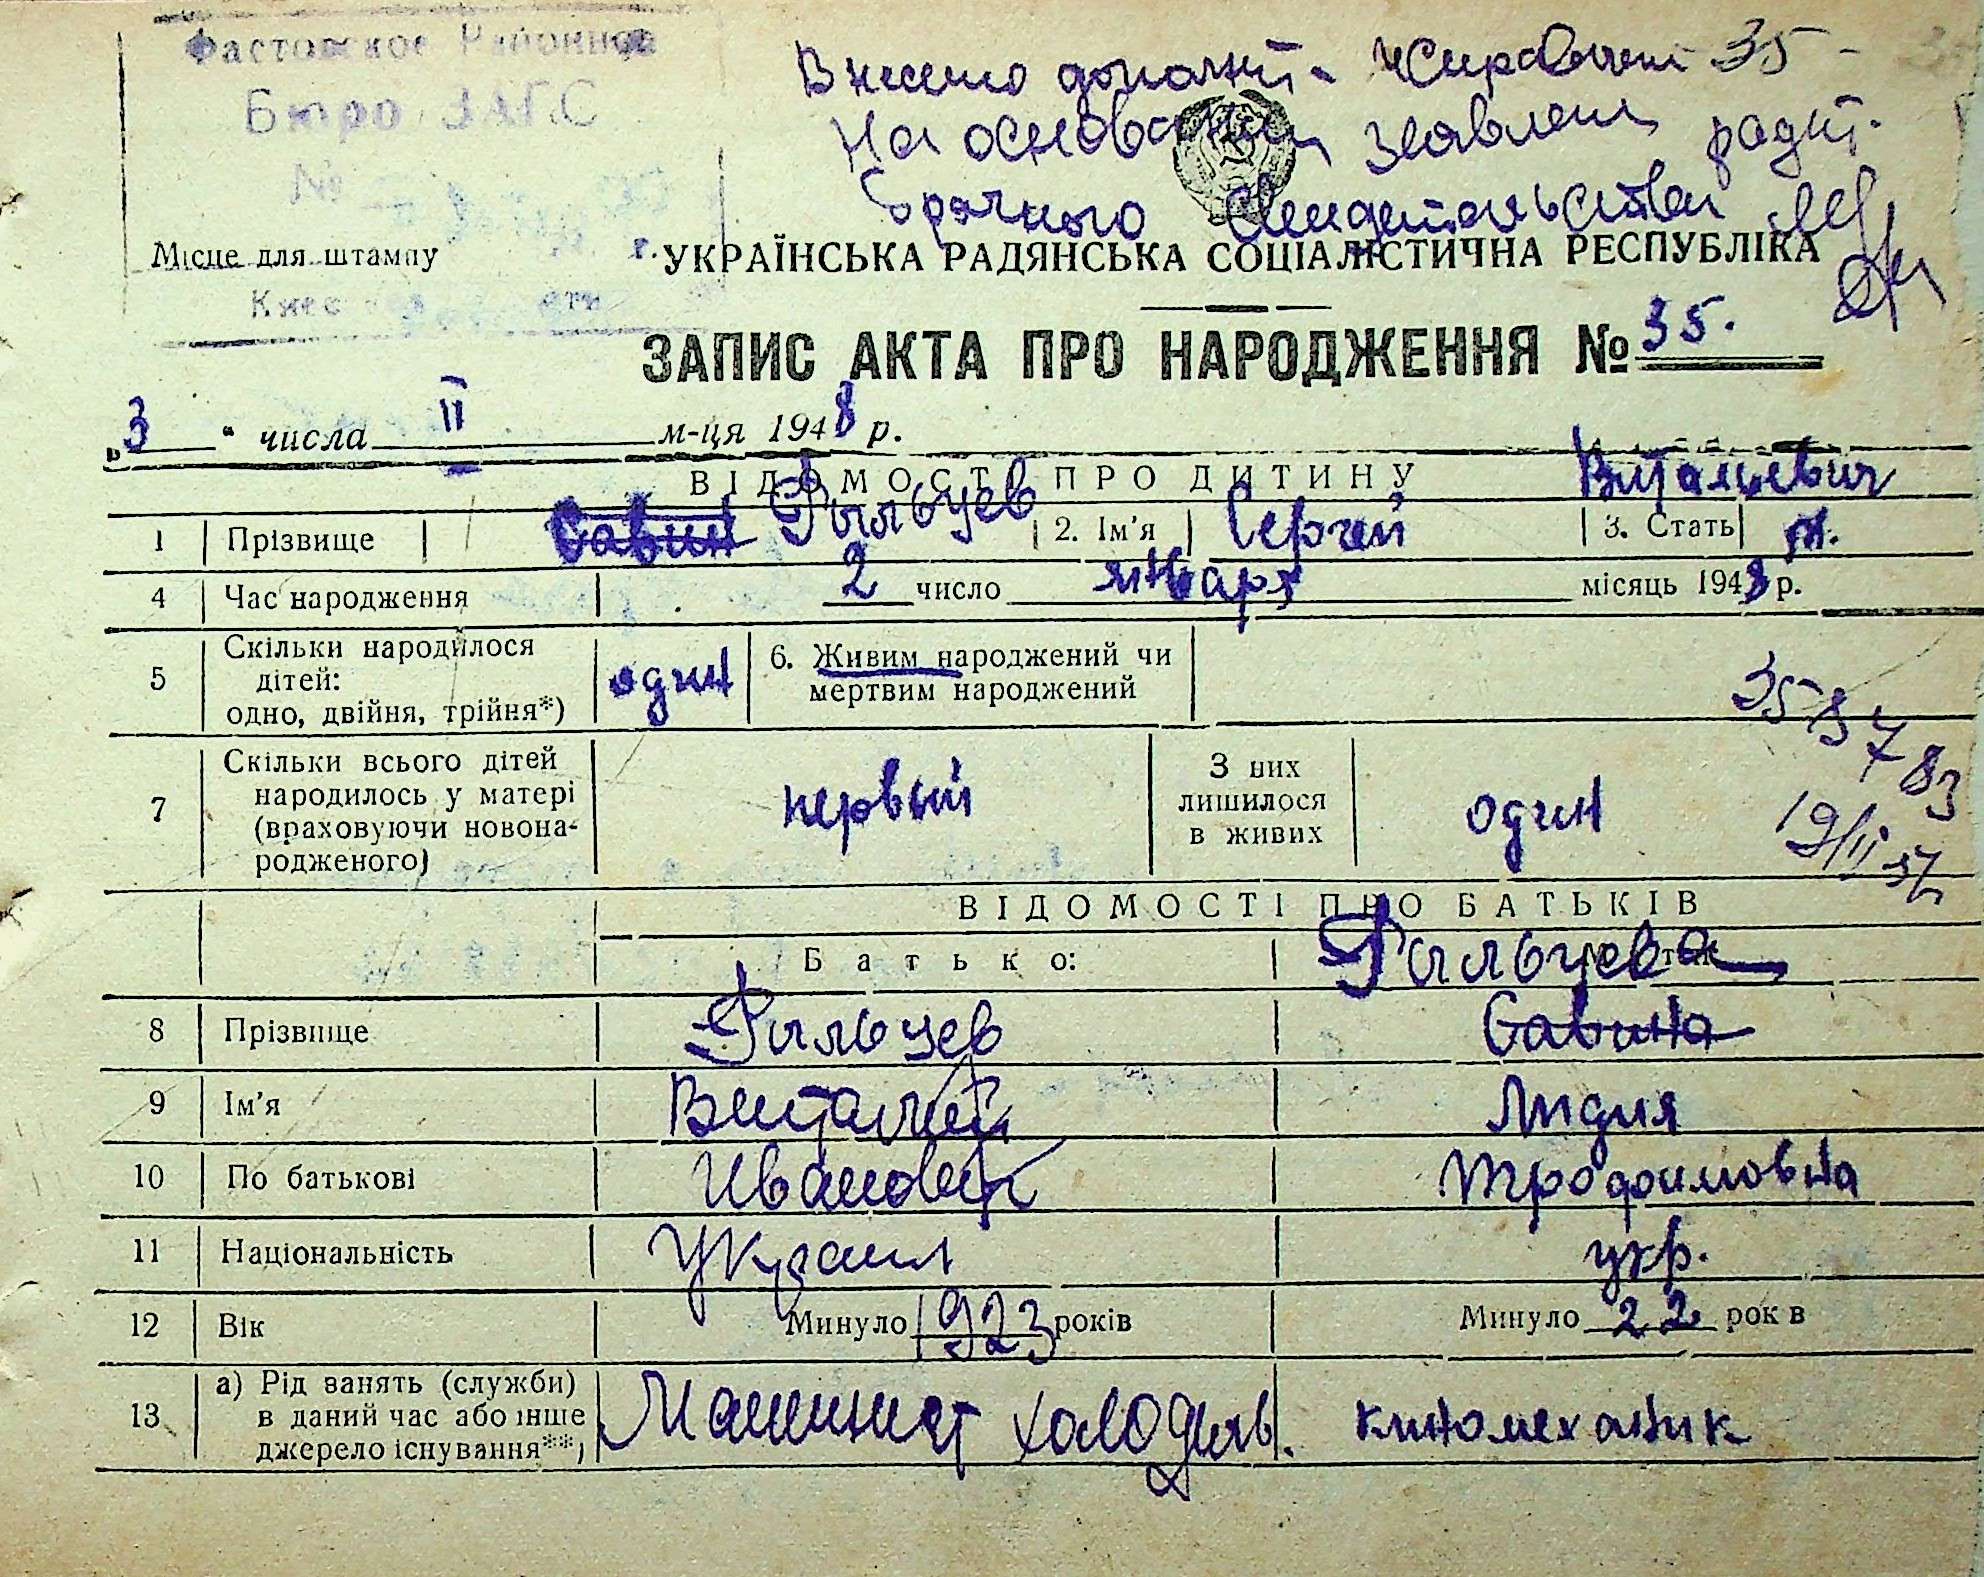 Фастовское Районное
Бюро ЗАГС
№
Внесено дополн. и исправлен 35
На основании заявлен родит.
брачного свидетельства
Місце для штампу
г.
УКРАЇНСЬКА РАДЯНСЬКА СОЦІАЛІСТИЧНА РЕСПУБЛІКА
ЗАПИС АКТА ПРО НАРОДЖЕННЯ № 35.
„3“ числа II м-ця 1948 р.
ВІДОМОСТІ ПРО ДИТИНУ
Витальевич
1 Прізвище Савин Рыльцев 2. Ім'я Сергей 3. Стать м.
4 Час народження 2 число январь місяць 1948 р.
5 Скільки народилося
дітей:
одно, двійня, трійня*) один
6. Живим народжений чи
мертвим народжений
7 Скільки всього дітей
народилось у матері
(враховуючи новона-
родженого) первый
З них
лишилося
в живих один
35 8 7 83
19/II 57
ВІДОМОСТІ ПРО БАТЬКІВ
Батько: Рыльцева
8 Прізвище Рыльцев Савина
9 Ім'я Виталий Лидия
10 По батькові Иванович Трофимовна
11 Національність Украин укр.
12 Вік Минуло 1923 років Минуло 22 рок в
13 а) Рід занять (служби)
в даний час або інше
джерело існування**) Машинист холодильн. киномеханик